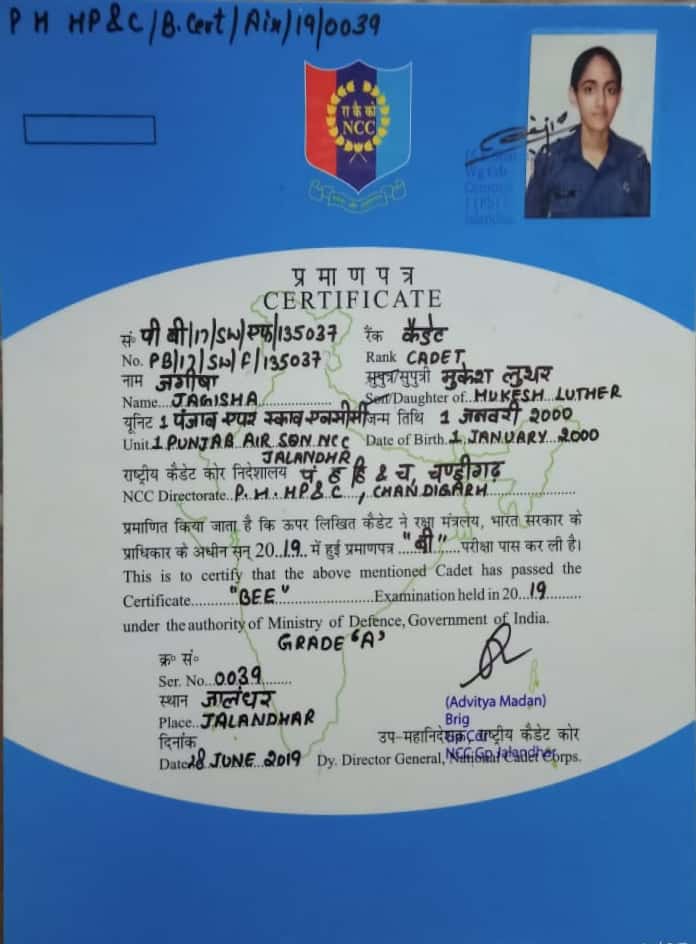 P H HP & C/B.Cert/Air/19/0039
रा कै को
NCC
Wg Cdr
प्रमाणपत्र
CERTIFICATE
सं॰ पी बी/17/SW/एफ/135037 रैंक कैडेट
No. PB/17/SW/F/135037 Rank CADET
नाम जगीषा सुपुत्र/सुपुत्री मुकेश लुथर
Name...JAGISHA Son/Daughter of..MUKESH LUTHER
यूनिट 1 पंजाब एयर स्काव एनसीसी जन्म तिथि 1 जनवरी 2000
Unit 1 PUNJAB AIR SQN NCC Date of Birth 1 JANUARY 2000
JALANDHR
राष्ट्रीय कैडेट कोर निदेशालय पं. ह हि & च, चण्डीगढ़
NCC Directorate..P.H.HP&C, CHANDIGARH
प्रमाणित किया जाता है कि ऊपर लिखित कैडेट ने रक्षा मंत्रलय, भारत सरकार के
प्राधिकार के अधीन सन् 2019 में हुई प्रमाणपत्र "बी" परीक्षा पास कर ली है।
This is to certify that the above mentioned Cadet has passed the
Certificate "BEE" Examination held in 2019
under the authority of Ministry of Defence, Government of India.
GRADE 'A'
क्र॰ सं॰
Ser. No...0039
स्थान जालंधर
Place..JALANDHAR
(Advitya Madan)
Brig
दिनांक उप-महानिदेशक, राष्ट्रीय कैडेट कोर
Date 28 JUNE 2019 Dy. Director General, National Cadet Corps.
NCC Gp Jalandher